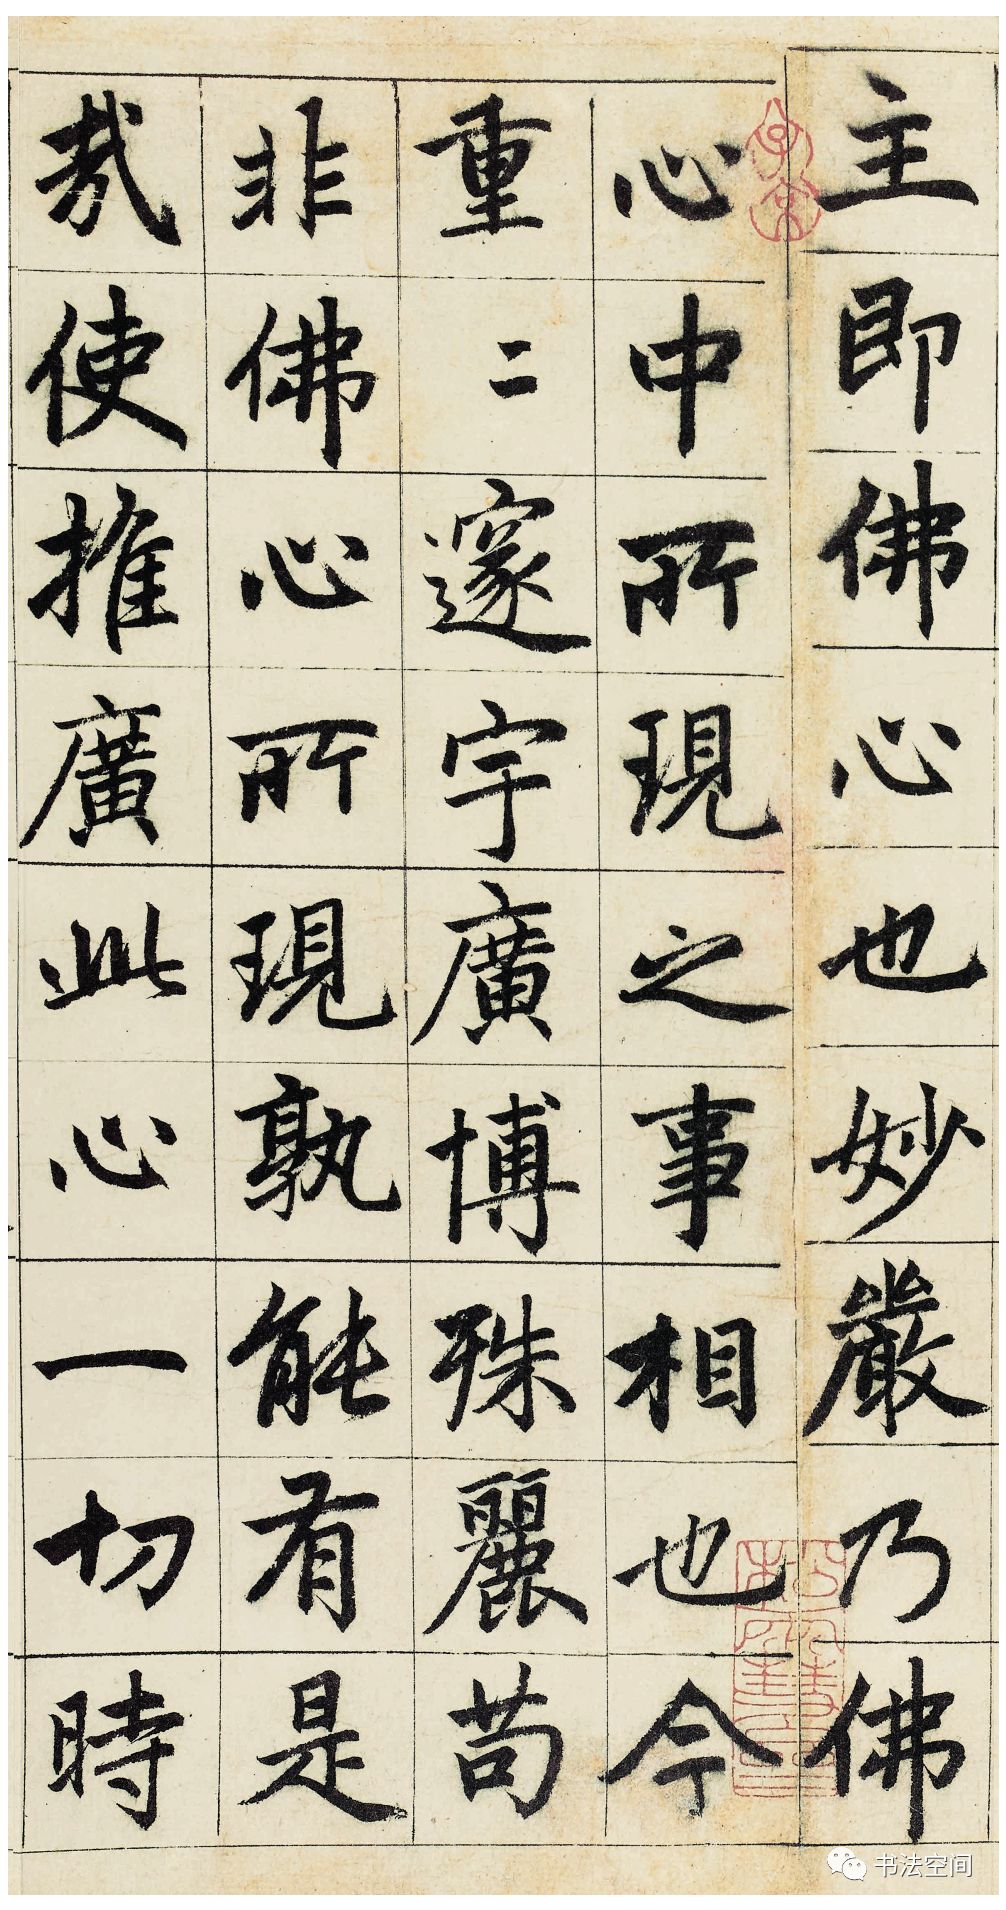 主即佛心也妙嚴乃佛
心中所現之事相也今
重二邃宇廣博殊麗苟
非佛心所現孰能有是
哉使推廣此心一切時
书法空间